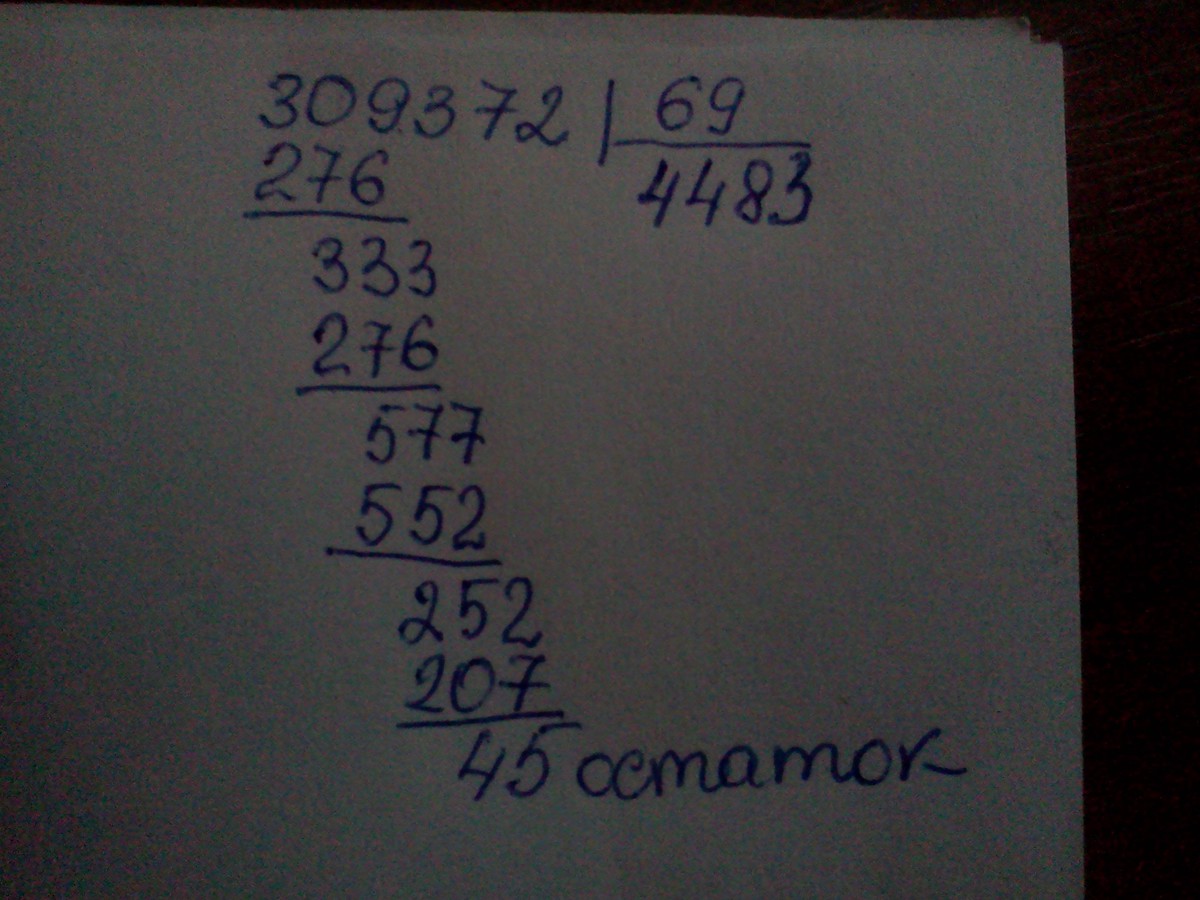 309372 | 69
276 4483
333
276
577
552
252
207
45 остаток